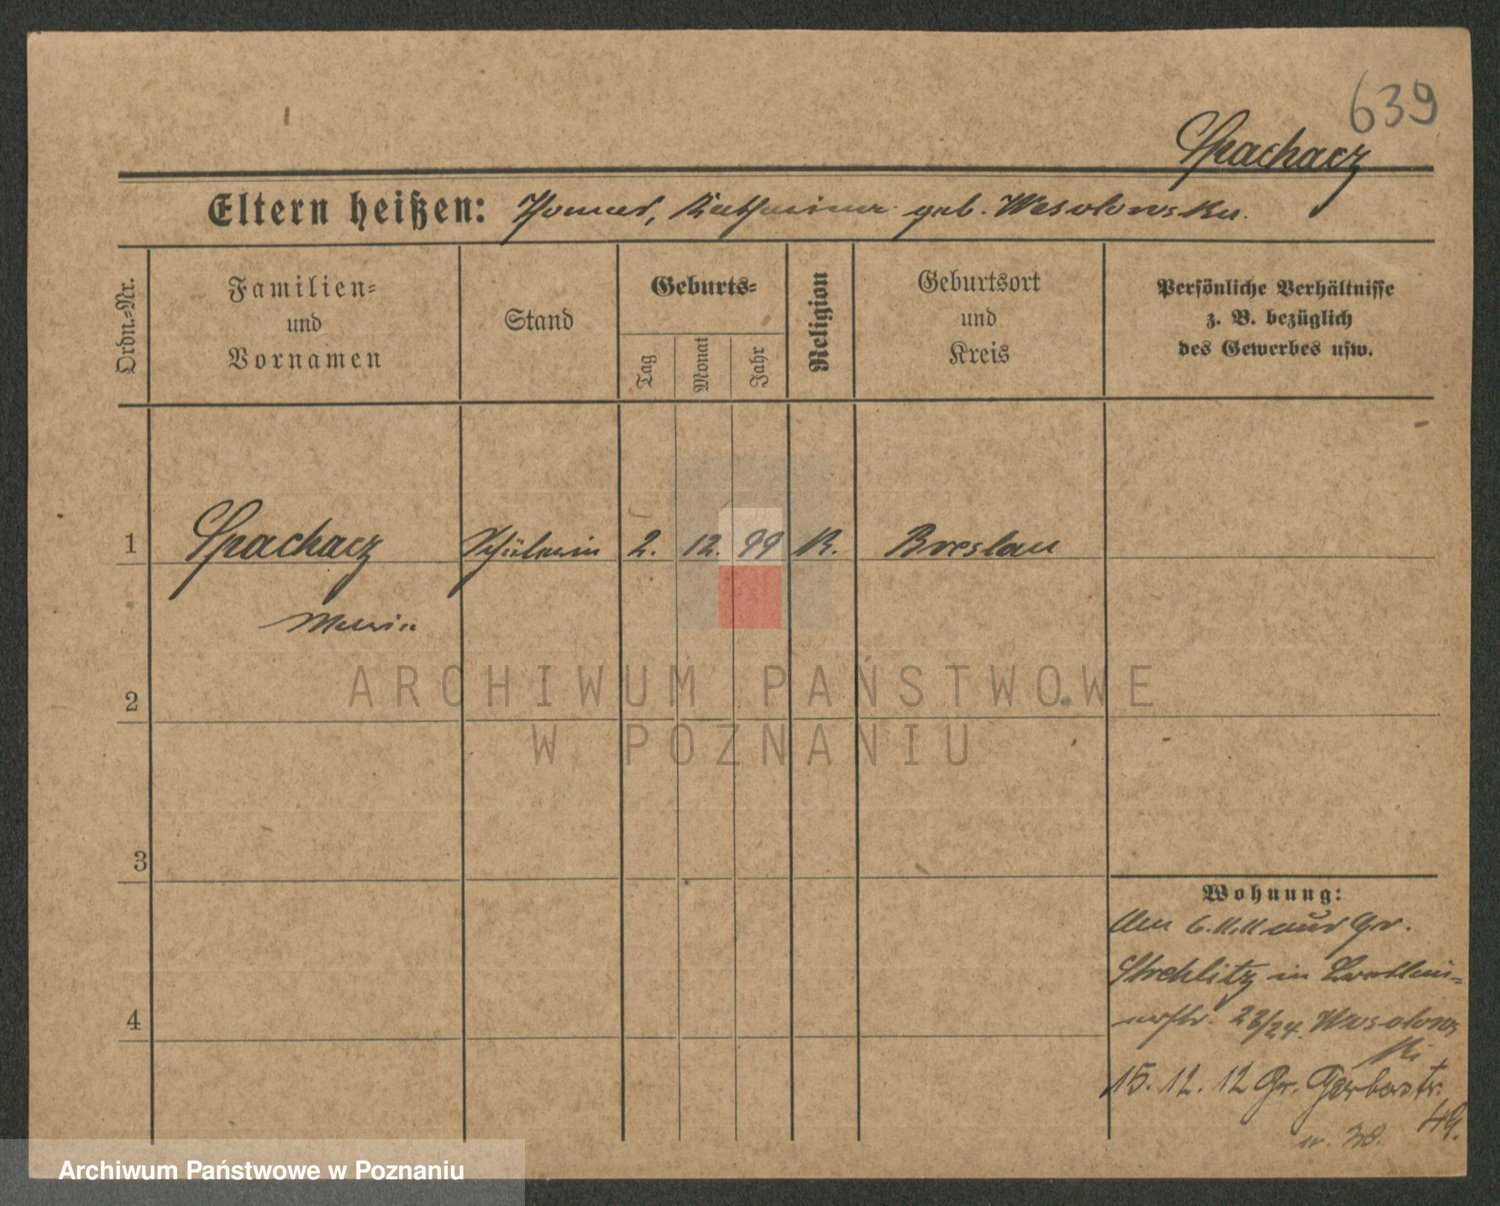 639
Spachacz
Eltern heißen: Thomas, Katharina geb. Wesolowska.
Ordn.-Nr.
Familien-
und
Vornamen
Stand
Geburts-
Tag
Monat
Jahr
Religion
Geburtsort
und
Kreis
Persönliche Verhältnisse
z. B. bezüglich
des Gewerbes usw.
1 Spachacz Schülerin 2. 12. 99 K. Breslau
Maria
2
3
4
Wohnung:
Am 6.11.11 aus Gr.
Strehlitz in
23/24. Wesolows
ki
15. 12. 12 Gr. Gerberstr.
49.
ARCHIWUM PAŃSTWOWE
W POZNANIU
Archiwum Państwowe w Poznaniu